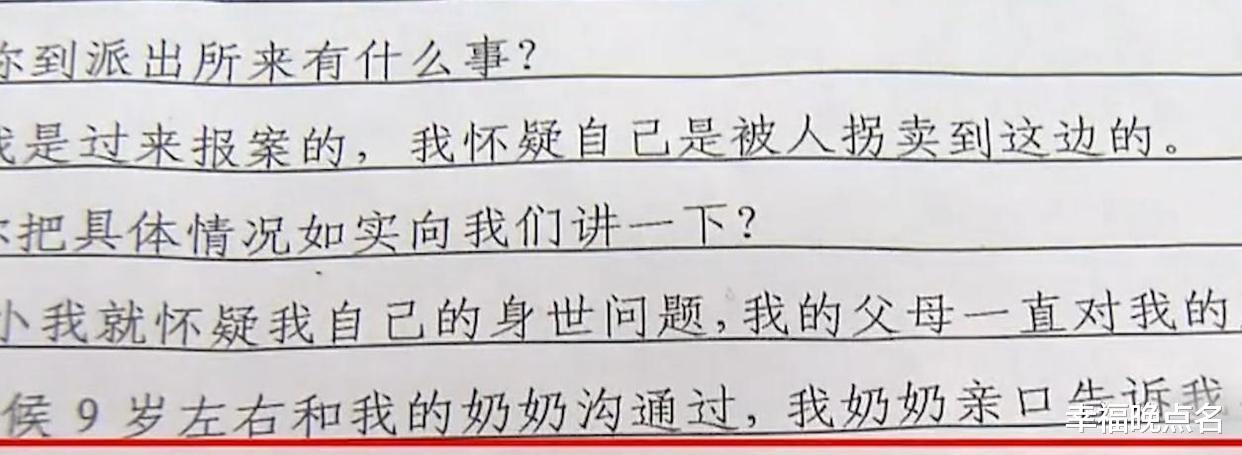 你到派出所来有什么事？
我是过来报案的，我怀疑自己是被人拐卖到这边的。
你把具体情况如实向我们讲一下？
小我就怀疑我自己的身世问题，我的父母一直对我的
候9岁左右和我的奶奶沟通过，我奶奶亲口告诉我
幸福晚点名